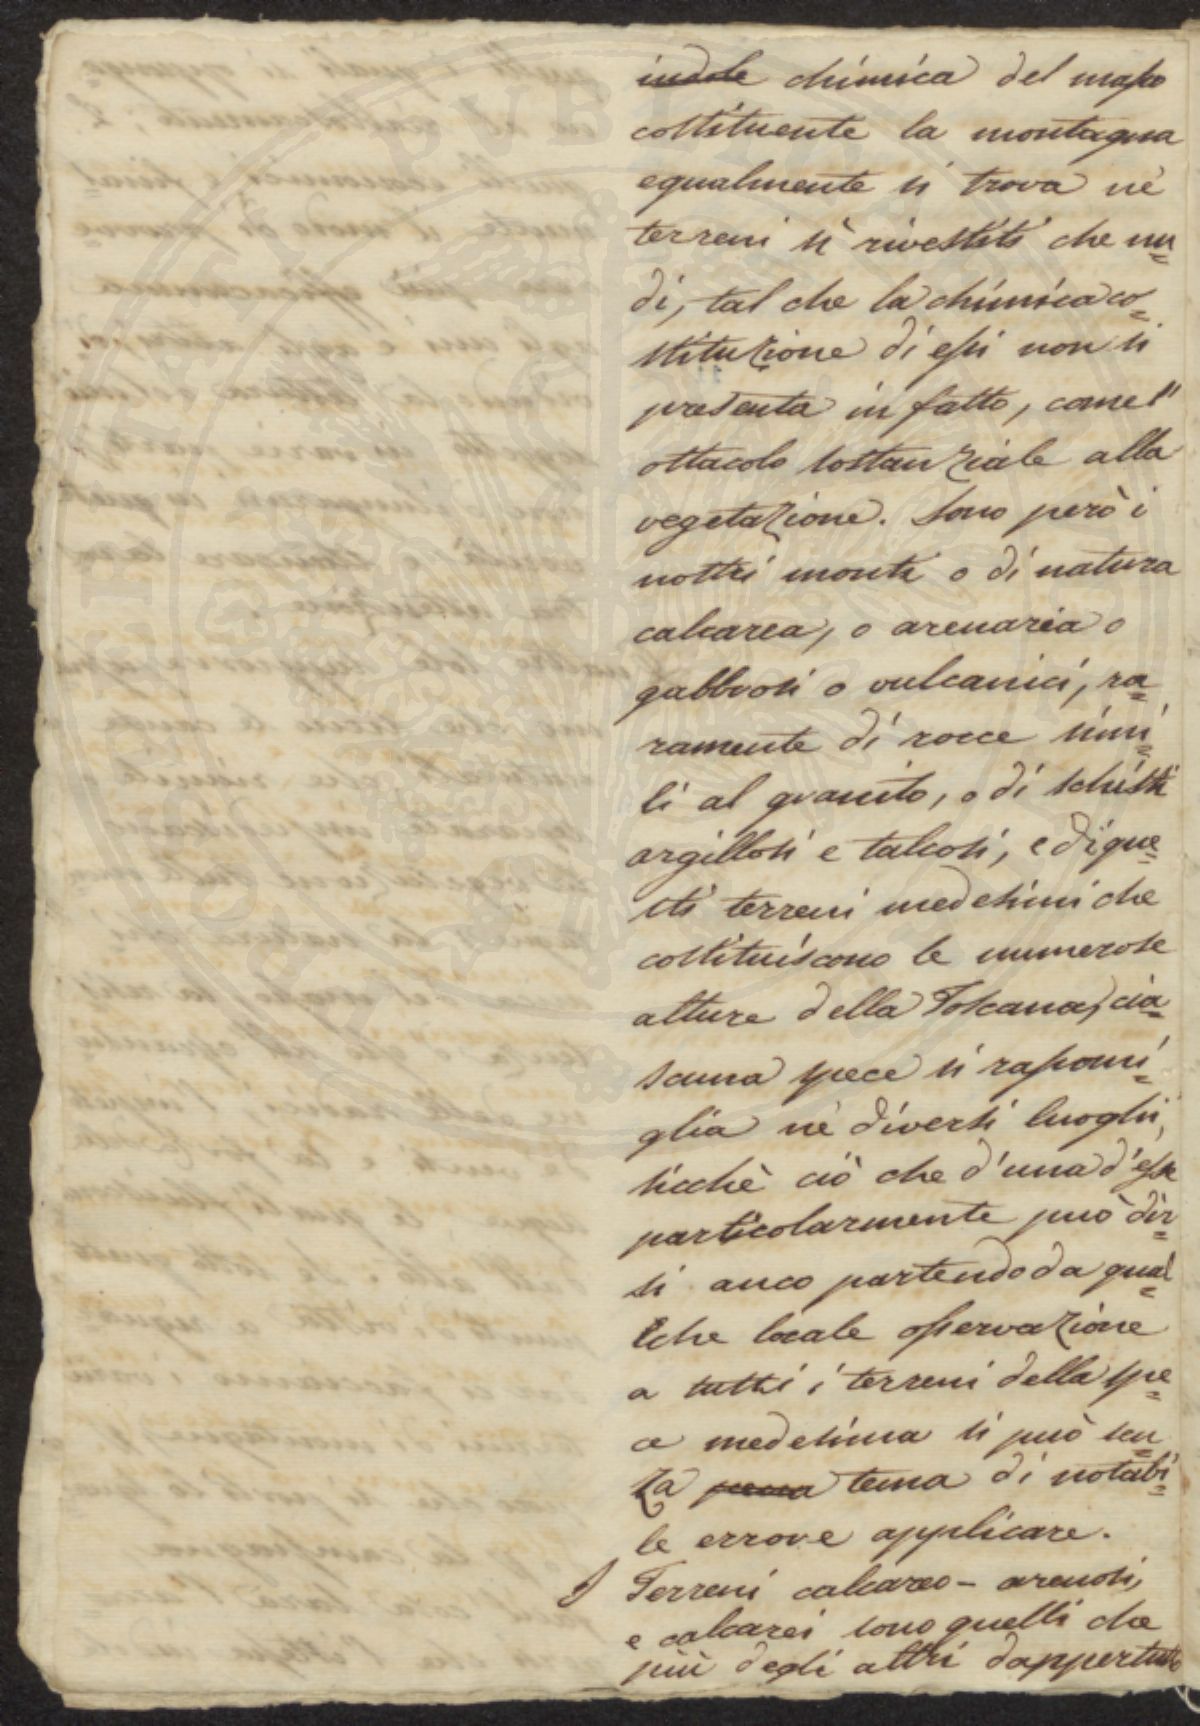 indole chimica del masso
costituente la montagna
egualmente si trova nè
terreni sì rivestiti che nu=
di, tal che la chimica co=
stituzione di essi non si
presenta in fatto, come l'
ostacolo sostanziale alla
vegetazione. Sono però i
nostri monti o di natura
calcarea, o arenaria o
gabbrosi o vulcanici, ra=
ramente di rocce simi=
li al granito, o di schisti
argillosi e talcosi, e di que=
sti terreni medesimi che
costituiscono le numerose
alture della Toscana, cia=
scuna spece si rassomi=
glia nè diversi luoghi,
sicchè ciò che d'una d'esse
particolarmente può dir=
si anco partendo da qual=
che locale osservazione
a tutti i terreni della spe=
ce medesima si può sen=
za tema di notabi=
le errore applicare.
Terreni calcareo-arenosi,
e calcarei sono quelli che
più degli altri dappertutto